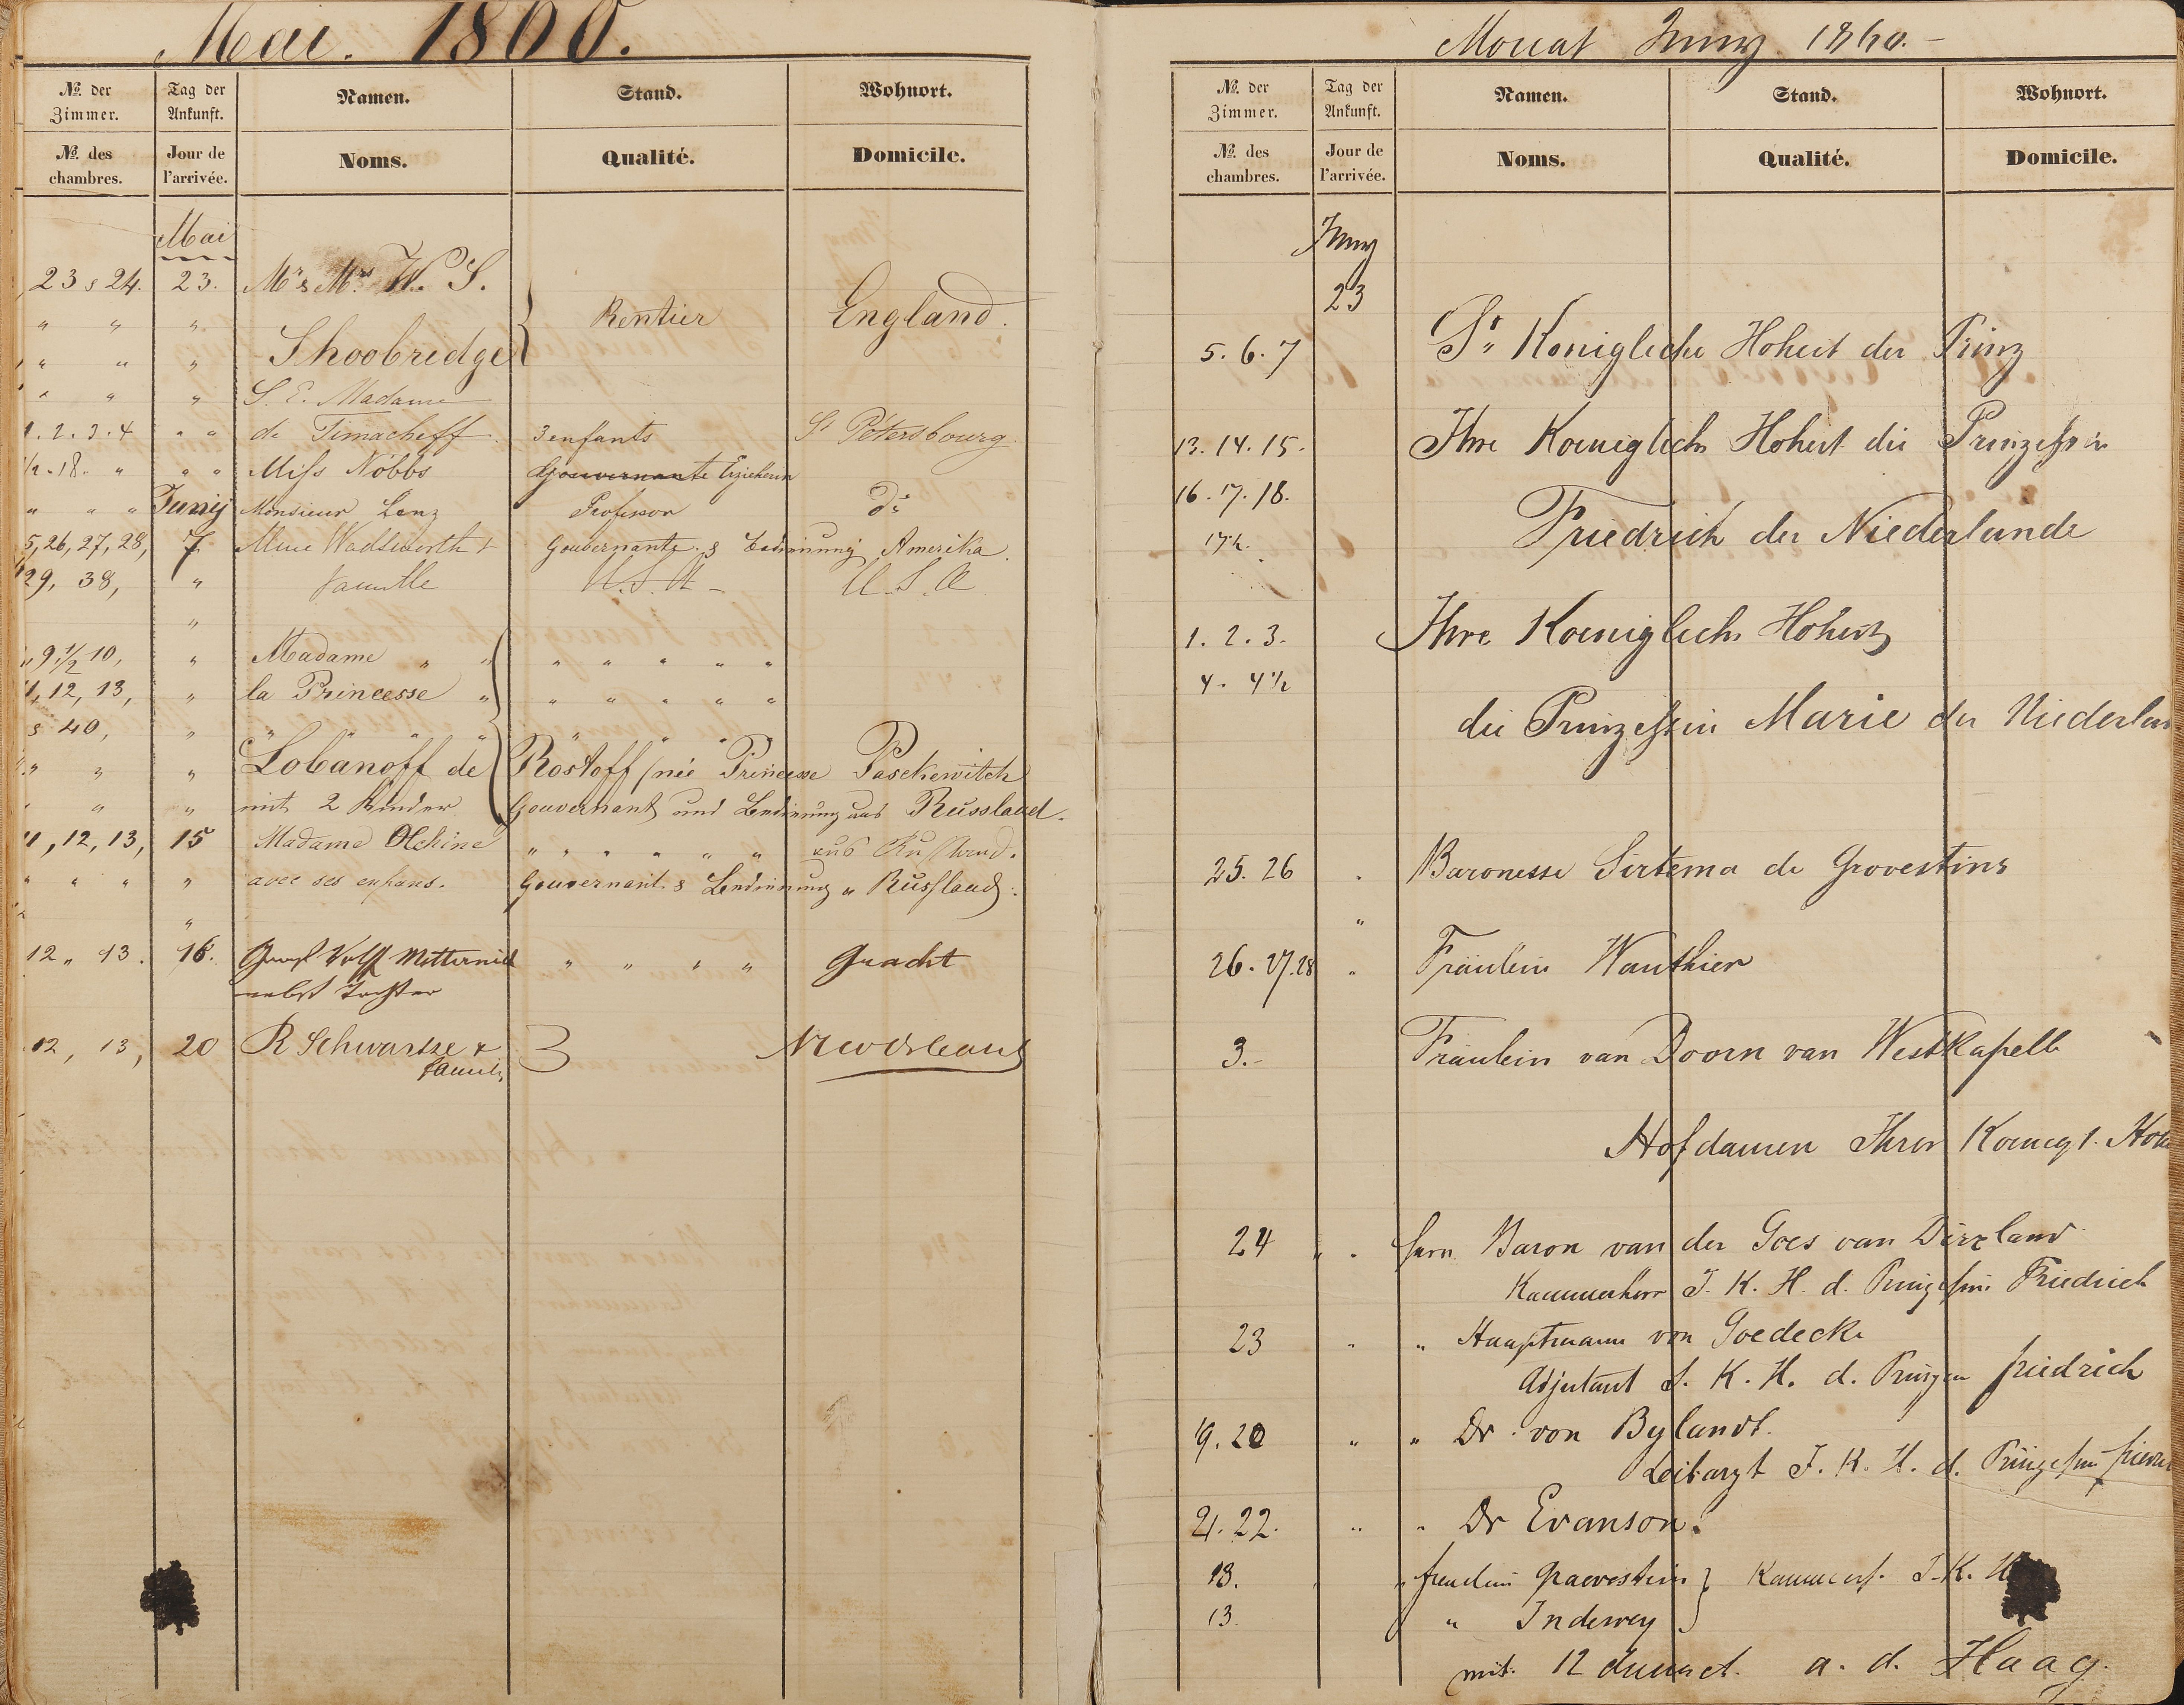 Mai. 1860.
No. der Zimmer. Tag der Ankunft. Namen. Stand. Wohnort.
No. des chambres. Jour de l'arrivée. Noms. Qualité. Domicile.
Mai
23 & 24. 23. Mr & Mrs W. S.
" " " Rentier England.
" " " Shoobridge
" " " S. E. Madame
1. 2. 3. 4 " " de Timacheff. 3 enfants St Pétersbourg.
18. " " " Miss Nobbs Gouvernante Erzieherin
" " " Junij Monsieur Lenz Professor do
5, 26, 27, 28, 7 Mme Wadsworth & Gouvernante & Bedinung Amerika.
29, 38, " famille U.S.A - U.S.A
"
9 1/2 10, " Madame " " " " " " "
11, 12, 13, " la Princesse " " " " " "
& 40, " " " " " " " " "
" " " Lobanoff de Rostoff (née Princesse Paskewitch
" " " mit 2 Kinder Gouvernant und Bedinung aus Russland.
11, 12, 13, 15 Madame Olchine " " " " " " aus Russland.
" " " " avec ses enfans. Gouvernant & Bedinung " Russland.
"
12 " 13. 16. Graf Wolff Metternich " " " " Gracht
nebst Tochter
12, 13, 20 R Schwartze & 3 New Orleans
famile
Monat Juny 1860. -
No. der Zimmer. Tag der Ankunft. Namen. Stand. Wohnort.
No. des chambres. Jour de l'arrivée. Noms. Qualité. Domicile.
Juny
23
5. 6. 7 Sr Konigliche Hoheit der Prinz
13. 14. 15. Ihre Koenigliche Hoheit die Prinzessin
16. 17. 18.
17½. Friedrich der Niederlande
1. 2. 3. Ihre Koenigliche Hoheit
4. 4½
die Prinzessin Marie der Niederlan
25. 26 " Baronesse Sirtema de Grovestins
"
26. 27. 28 " Fräulein Wauthier
3. - Fräulein van Doorn van Westkapelle
Hofdamen Ihrer Koenigl. Hohe
24 " " Herrn Baron van der Goes van Dirxland
Kammerherr I. K. H. d. Prinzessin Friedrich
23 " " Hauptmann von Goedecke
Adjutant S. K. H. d. Prinzen friedrich
19. 20 " " Dr von Bylandt.
Leibarzt I. K. H. d. Prinzessin
21. 22. " " Dr Evanson.
18. " " Graevestein I. K. H
13. " Indewey
mit 12 a. d. Haag.